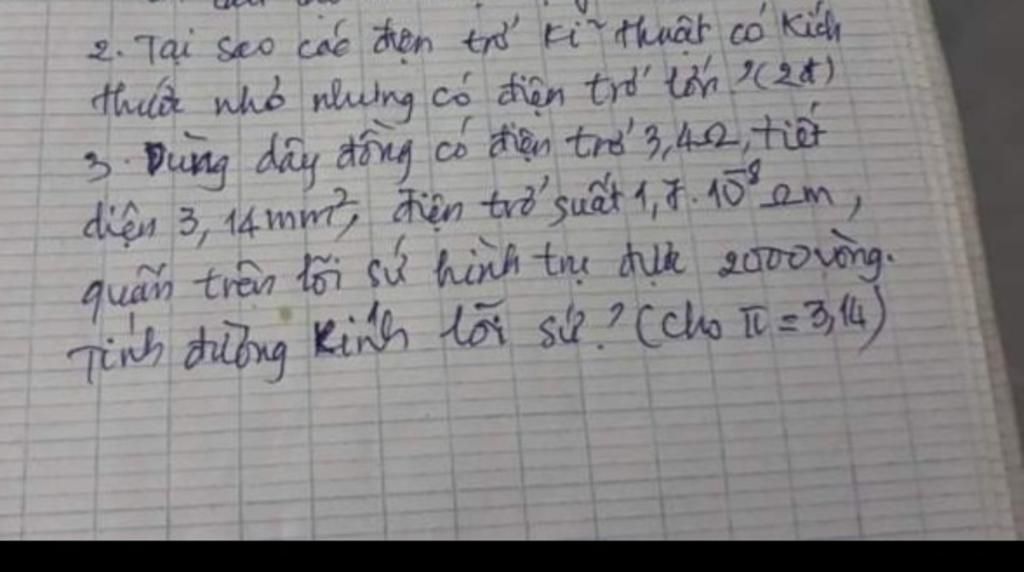 2. Tại sao các điện trở kĩ thuật có kích
thước nhỏ nhưng có điện trở lớn? (2đ)
3. Dùng dây đồng có điện trở 3,4Ω, tiết
diện 3,14mm², điện trở suất 1,7.10⁻⁸ Ωm,
quấn trên lõi sứ hình trụ được 2000 vòng.
Tính đường kính lõi sứ? (Cho π = 3,14)